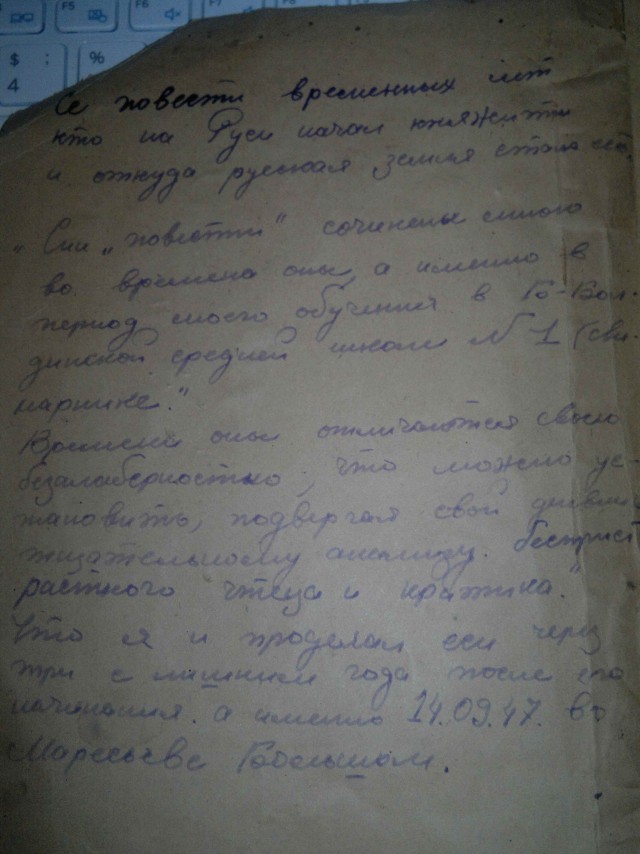 F5
F6
F7
$ ;
4
%
Се повести временных лѣт
кто на Руси начал княжити
и откуда русская земля стала есть
„Сии „повести" сочинены мною
во времена оны, а именно в
период моего обучения в
динской средней школе № 1 (сви-
нарнике."
Времена оны отличаются своею
безалаберностью, что можно ус-
тановить, подвергая свой дневник
тщательному анализу бесприст
растного чтеца и критика."
Что я и проделал еси через
три с лишним года после его
начинания. а именно 14.09.47. во
Большом.